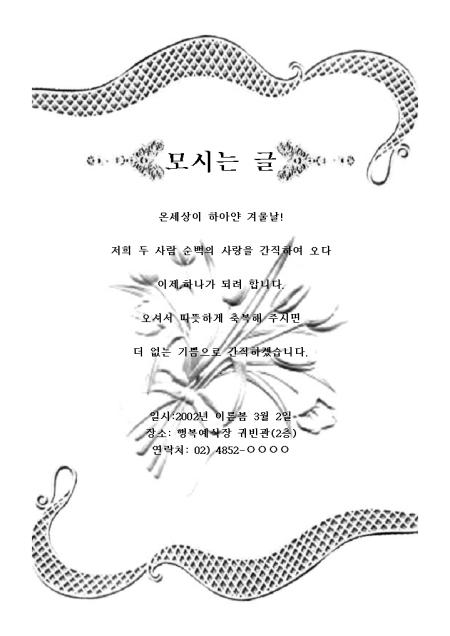 모시는 글
온세상이 하아얀 겨울날!
저희 두 사람 순백의 사랑을 간직하여 오다
이제 하나가 되려 합니다.
오셔서 따뜻하게 축복해 주시면
더 없는 기쁨으로 간직하겠습니다.
일시:2002년 이른봄 3월 2일
장소: 행복예식장 귀빈관(2층)
연락처: 02) 4852-ㅇㅇㅇㅇ